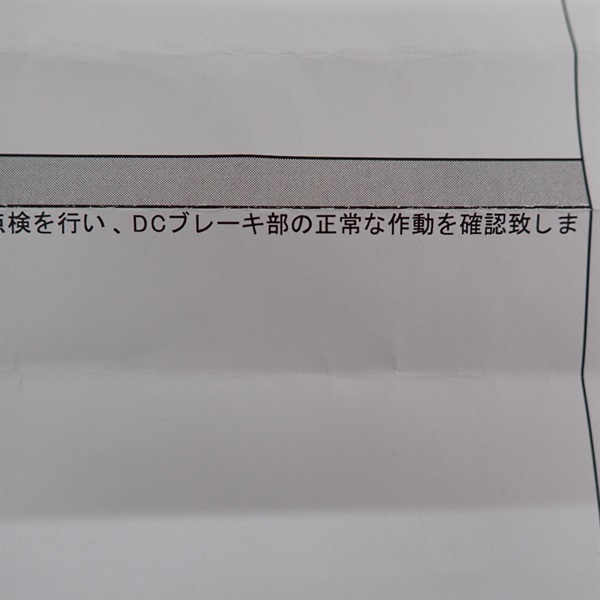 点検を行い、DCブレーキ部の正常な作動を確認致しま